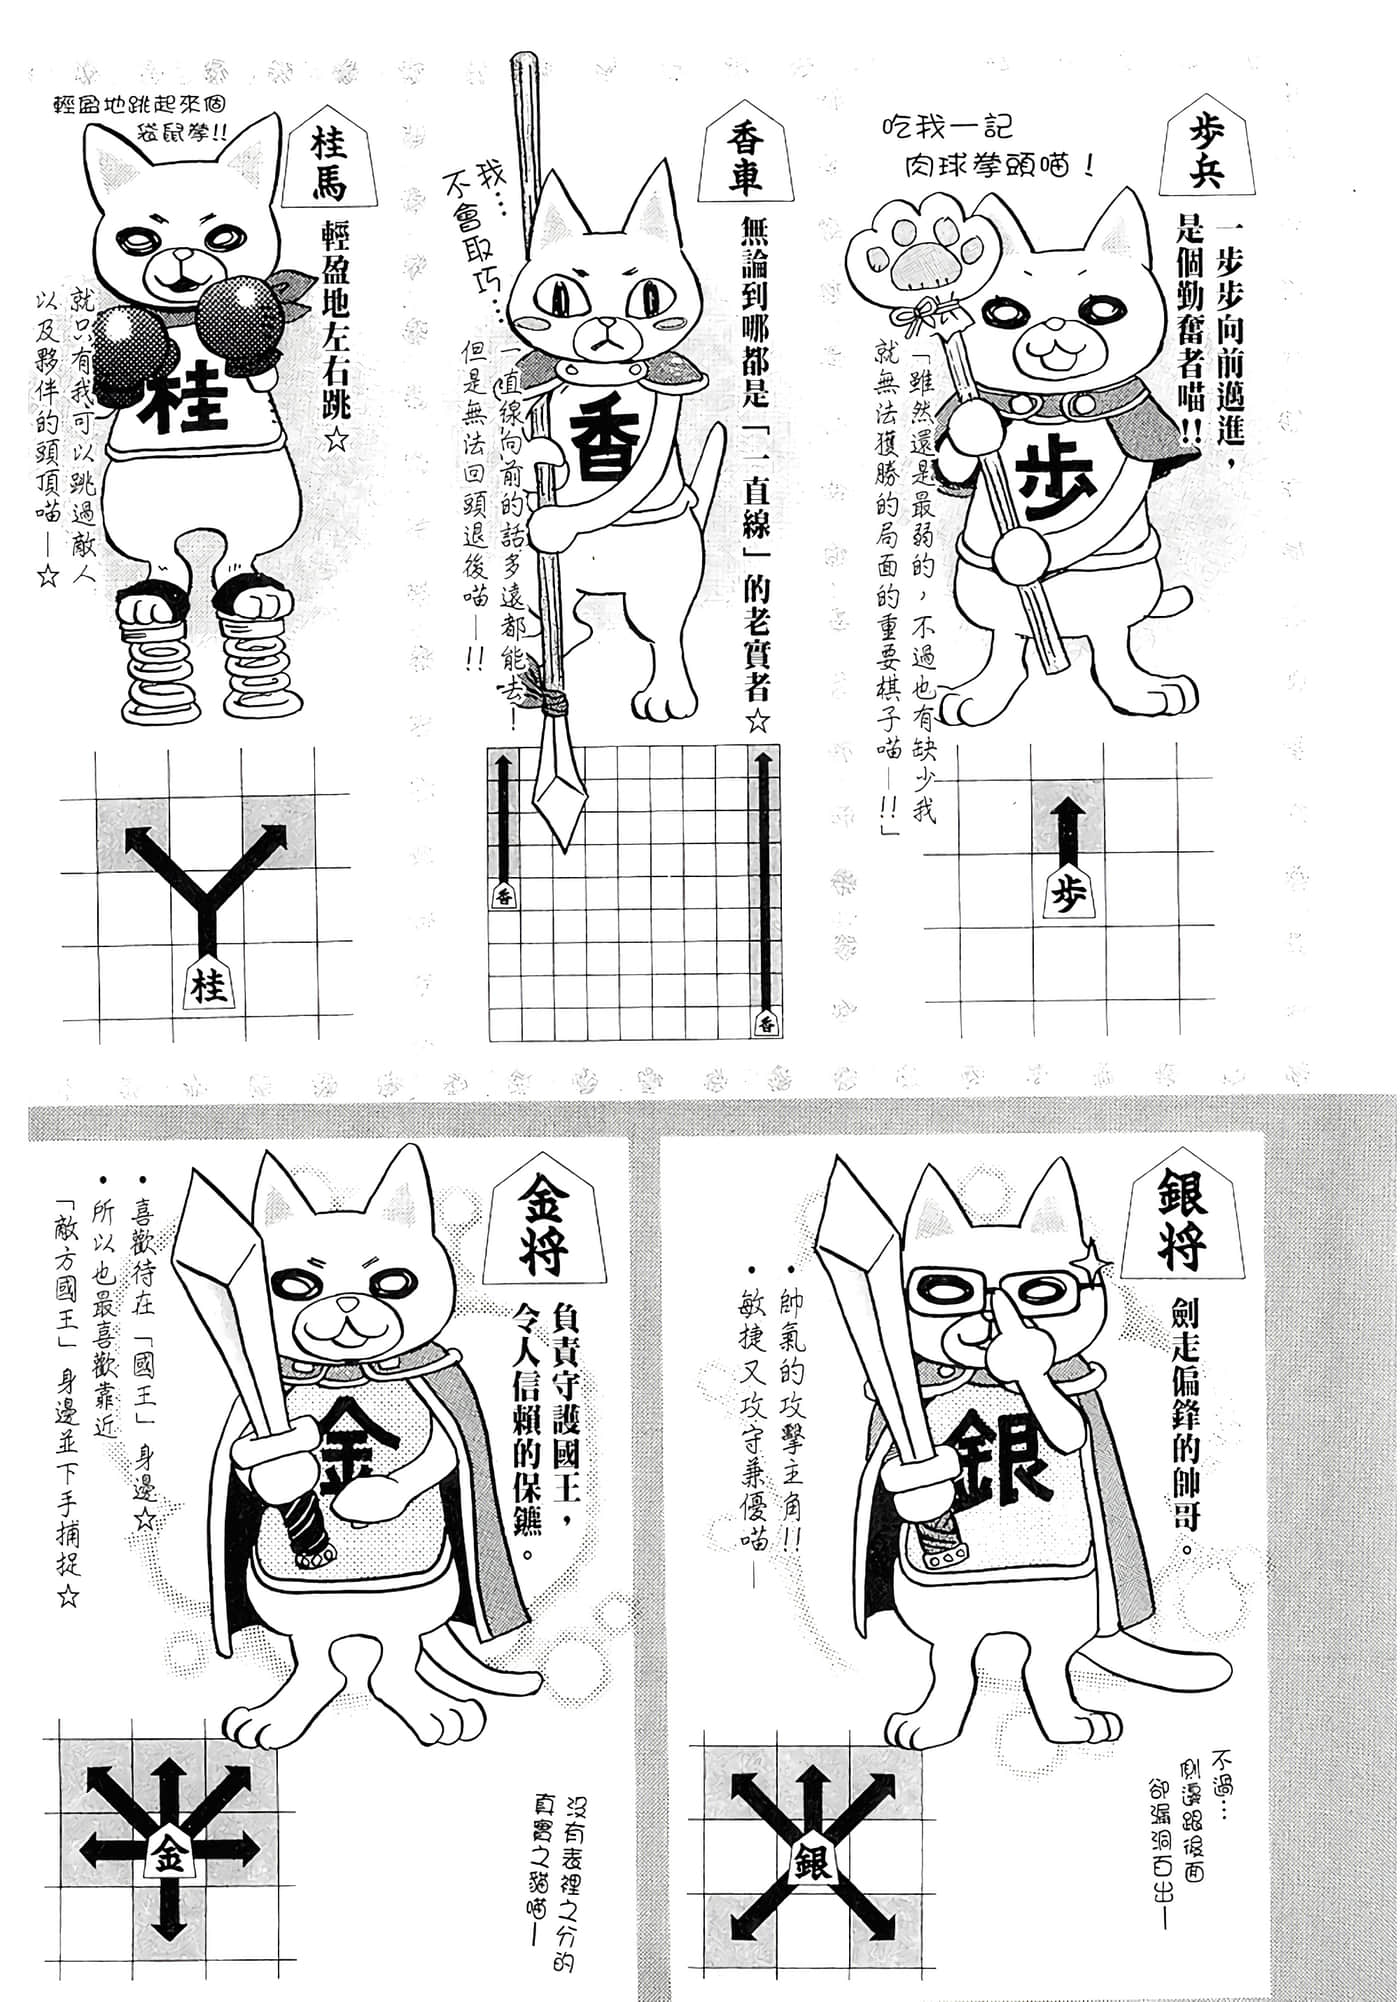 步兵
一步步向前邁進，
是個勤奮者喵!!
吃我一記
肉球拳頭喵！
「雖然還是最弱的，不過也有缺少我
就無法獲勝的局面的重要棋子喵—!!」
歩
歩
香車
無論到哪都是「一直線」的老實者☆
我…
不會取巧…
「直線向前的話多遠都能去！
但是無法回頭退後喵—!!
香
香
香
桂馬
輕盈地左右跳☆
輕盈地跳起來個
袋鼠拳!!
就只有我可以跳過敵人
以及夥伴的頭頂喵—☆
桂
桂
銀将
劍走偏鋒的帥哥。
・帥氣的攻擊主角!!
・敏捷又攻守兼優喵—
銀
不過…
側邊跟後面
卻漏洞百出—
銀
金将
負責守護國王，
令人信賴的保鑣。
・喜歡待在「國王」身邊☆
・所以也最喜歡靠近
「敵方國王」身邊並下手捕捉☆
金
沒有表裡之分的
真實之貓喵—
金